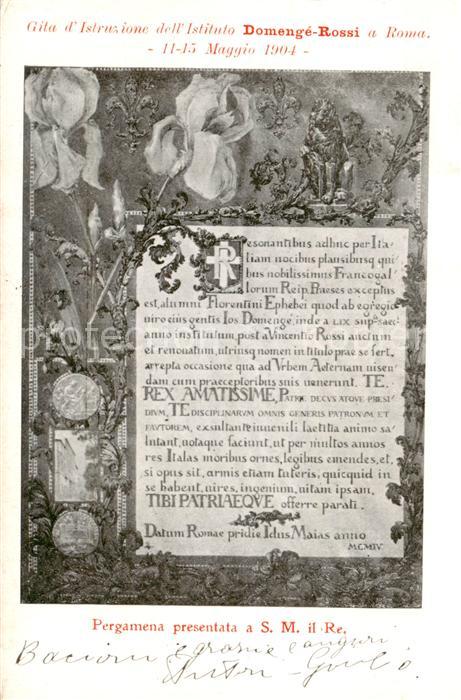 Gita d'Istruzione dell'Istituto Domengé-Rossi a Roma.
- 11-15 Maggio 1904 -
Resonantibus adhuc per Ita-
liam uocibus plausibusq qui
bus nobilissimus Francogal
lorum Reip. Praeses exceptus
est, alumni Florentini Ephebei quod ab egregio
uiro eius gentis Ios. Domengé, inde a LIX supᵃ saec.
anno institutum, post a Vincentio Rossi auctum
et renouatum, utriusq nomen in titulo prae se fert,
arrepta occasione qua ad Vrbem Aeternam uisen
dam cum praeceptoribus suis uenerunt. TE,
REX AMATISSIME, PATRIE DECVS ATQVE PRESI-
DIVM, TE DISCIPLINARVM OMNIS GENERIS PATRONVM ET
FAVTOREM, exsultante iuuenili laetitia animo sa-
lutant, uotaque faciunt, ut per multos annos
res Italas moribus ornes, legibus emendes, et,
si opus sit, armis etiam tuteris, quicquid in
se habent, uires, ingenium, uitam ipsam,
TIBI PATRIAEQVE offerre parati.
Datum Romae pridie Idus Maias anno
MCMIV
Pergamena presentata a S. M. il Re.
Bacioni e grazie e auguri